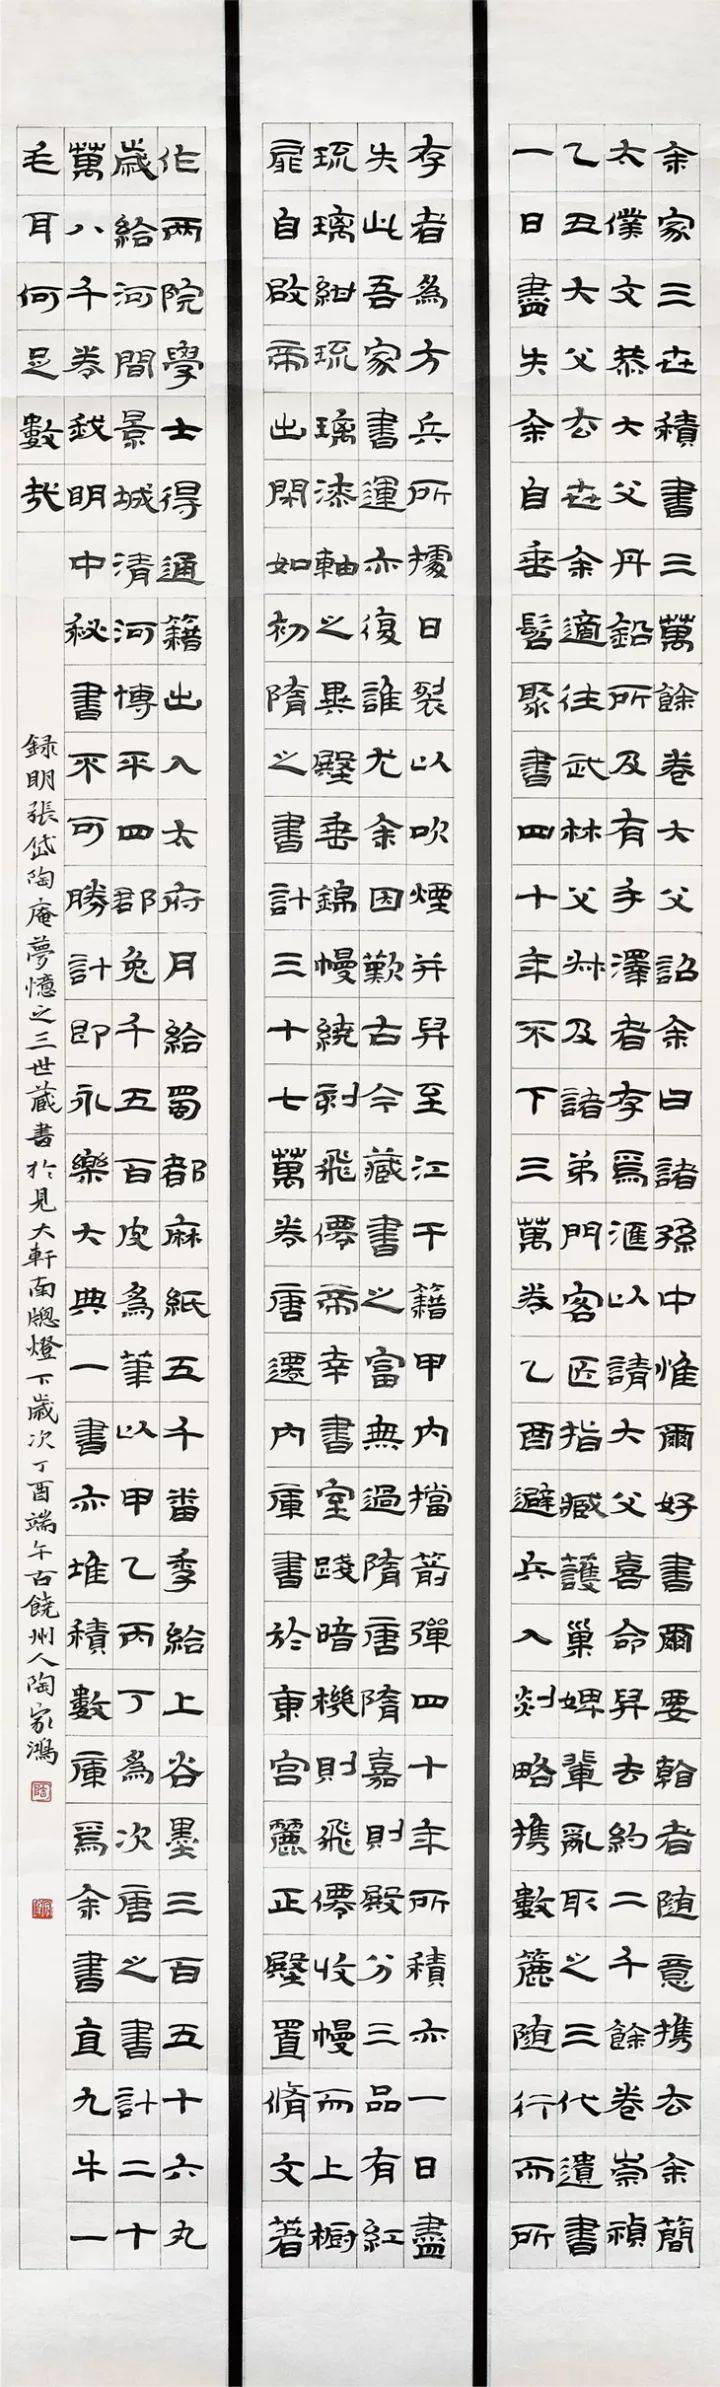 余家三世積書三萬餘卷大父詔余曰諸孫中惟爾好書爾要翰者随意攜去余簡
太僕文恭大父丹鉛所及有手澤者存焉滙以請大父喜命舁去約二千餘卷崇禎
乙丑大父去世余適往武林父叔及諸弟門客匠指臧護巢婢輩亂取之三代遺書
一日盡失余自垂髫聚書四十年不下三萬卷乙酉避兵入剡略攜數簏随行而所
存者為方兵所擄日裂以吹煙并舁至江干籍甲内擋箭彈四十年所積亦一日盡
失此吾家書運亦復誰尤余因歎古今藏書之富無過隋唐隋嘉則殿分三品有紅
琉璃紺琉璃漆軸之異殿垂錦幔繞刻飛僊帝幸書室踐暗機則飛僊收幔而上橱
扉自啟帝出閉如初隋之書計三十七萬卷唐遷内庫書於東宫麗正殿置脩文著
作两院學士得通籍出入太府月給蜀都麻紙五千番季給上谷墨三百五十六丸
歲給河間景城清河博平四郡兔千五百皮為筆以甲乙丙丁為次唐之書計二十
萬八千卷我明中秘書不可勝計即永樂大典一書亦堆積數庫焉余書直九牛一
毛耳何足數哉
録明張岱陶庵夢憶之三世藏書於見大軒南牕燈下歲次丁酉端午古饒州人陶家鴻
陶